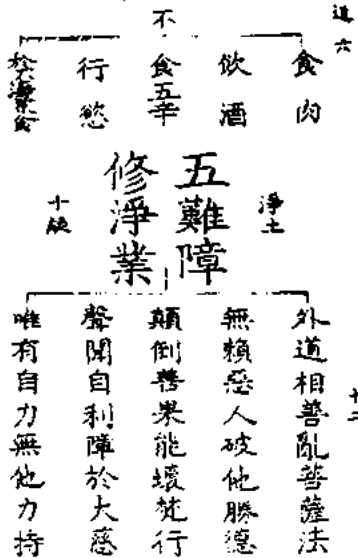 道六
不
食肉
飲酒
食五辛
行慾
淨土
五難障
修淨業
十二
外道相善亂菩薩法
無賴惡人破他勝德
顛倒善果能壞梵行
聲聞自利障於大慈
唯有自力無他力持